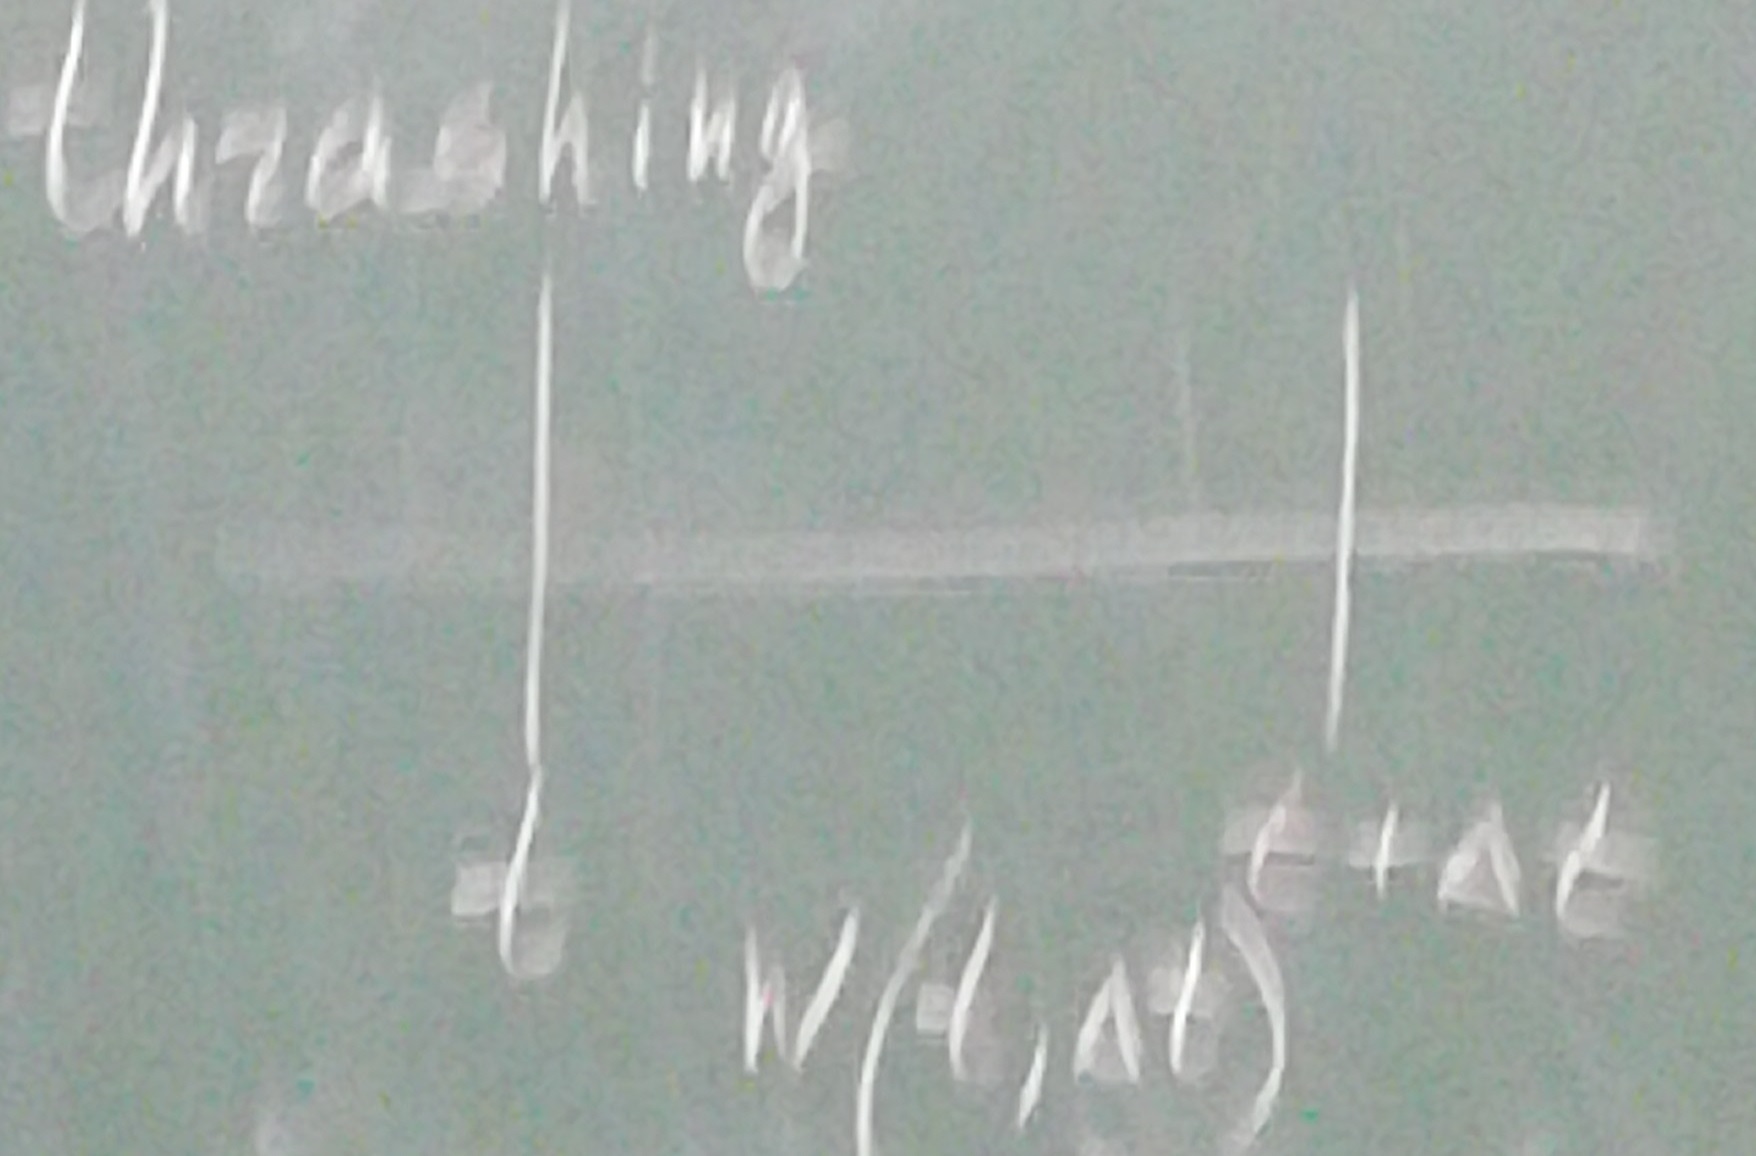 thrashing
t
t+Δt
W(t,Δt)